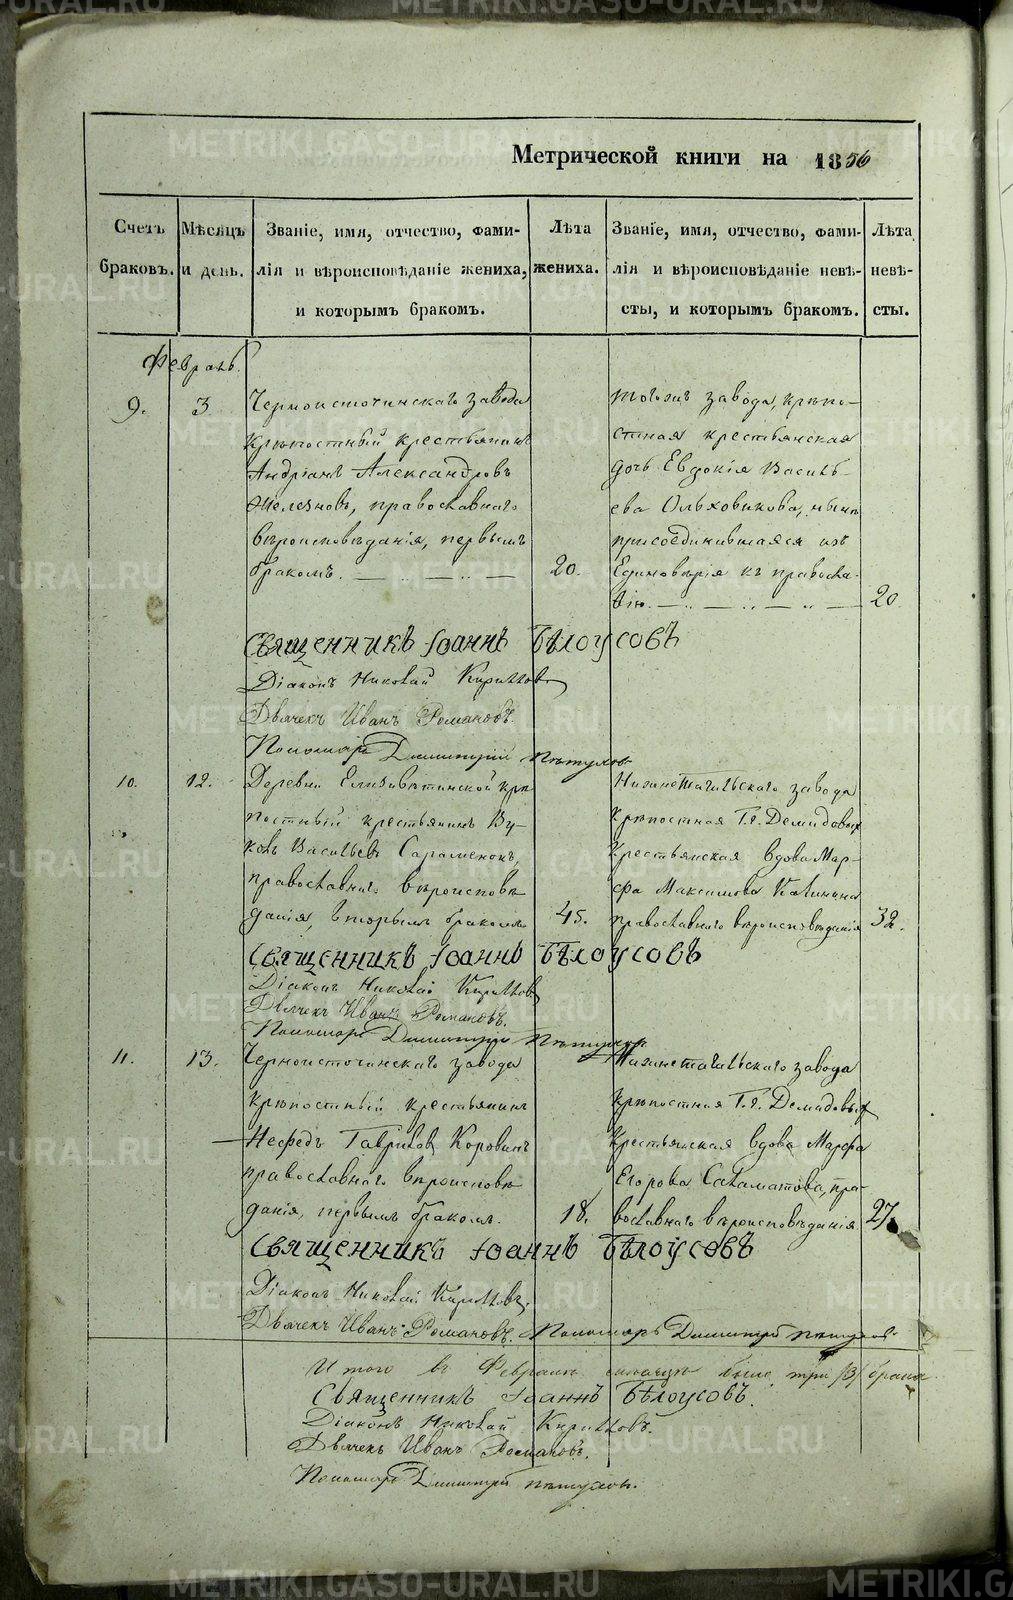 Метрической книги на 1856
Счетъ браковъ.
Мѣсяцъ и день.
Званіе, имя, отчество, фами-
лія и вѣроисповѣданіе жениха,
и которымъ бракомъ.
Лѣта жениха.
Званіе, имя, отчество, фами-
лія и вѣроисповѣданіе невѣ-
сты, и которымъ бракомъ.
Лѣта невѣ-
сты.
Февраль.
9.
3
Черноисточинскаго завода
крѣпостный крестьянинъ
Андріанъ Александровъ
Железновъ, православнаго
вѣроисповѣданія, первымъ
бракомъ.
20.
тогожъ завода, крѣпо-
стная крестьянская
дочь Евдокія Василь-
ева Ольховикова, нынѣ
присоединившаяся изъ
Единовѣрія къ правосла-
вію.
20
Священникъ Іоаннъ Бѣлоусовъ
Діаконъ Николай Кирилловъ
Дьячекъ Иванъ Романовъ.
Пономарь Димитрій Пѣтуховъ
10.
12.
Деревни Елизаветинской крѣ
постный крестьянинъ Ву-
колъ Васильевъ
православнаго вѣроисповѣ
данія, вторымъ бракомъ
45.
Нижнетагильскаго завода
крѣпостная Г.г. Демидовыхъ
крестьянская вдова Мар-
фа Максимова Калинина
православнаго вѣроисповѣданія
32.
Священникъ Іоаннъ Бѣлоусовъ
Діаконъ Николай Кирилловъ
Дьячекъ Иванъ Романовъ.
Пономарь Димитрій Пѣтуховъ
11.
13.
Черноисточинскаго завода
крѣпостный крестьянинъ
Нефедъ Гавриловъ Коровинъ
православнаго вѣроисповѣ
данія, первымъ бракомъ.
18.
Нижнетагильскаго завода
крѣпостная Г.г. Демидовыхъ
крестьянская вдова Марфа
Егорова Саламатова, пра-
вославнаго вѣроисповѣданія
27.
Священникъ Іоаннъ Бѣлоусовъ
Діаконъ Николай Кирилловъ.
Дьячекъ Иванъ Романовъ. Пономарь Димитрій Пѣтуховъ
Итого въ Февралѣ мѣсяцѣ было три /3/ брака
Священникъ Іоаннъ Бѣлоусовъ.
Діаконъ Николай Кирилловъ.
Дьячекъ Иванъ Романовъ.
Пономарь Димитрій Пѣтуховъ.
METRIKI.GASO-URAL.RU